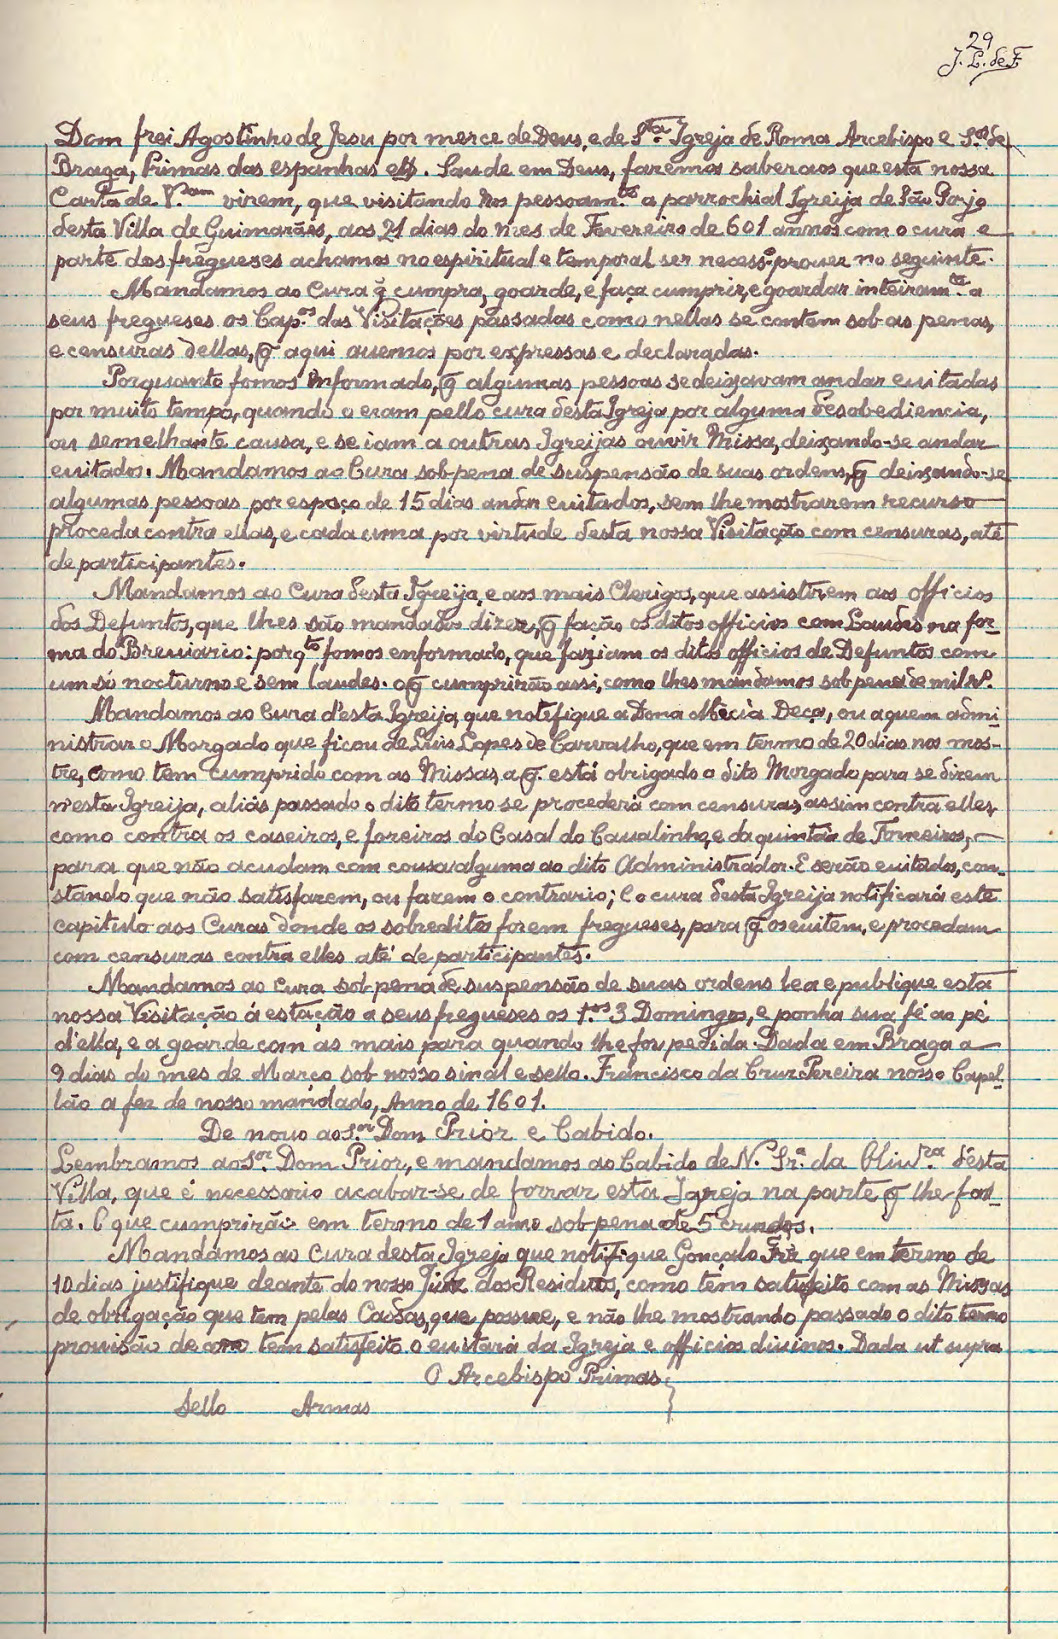 29
J. L. de F
Dom frei Agostinho de Jesu por merce de Deus, e de S.ta Igreja de Roma Arcebispo e S.or de
Braga, Primas das espanhas etc. Saude em Deus, faremos saber aos que esta nossa
Carta de V.am virem, que visitando nos pessoam.te a parrochial Igreija de São
desta Villa de Guimarães, aos 21 dias do mes de Fevereiro de 601 annos com o cura e
parte dos fregueses achamos no espiritual e temporal ser necess.o prouer no seguinte.
Mandamos ao Cura q̃ cumpra, goarde, e faça cumprir, e goardar inteiram.te a
seus fregueses os Cap.os das Visitações passadas como nellas se contem sob as penas,
e censuras dellas, q̃ aqui auemos por expressas e declaradas.
Porquanto fomos informado, q̃ algumas pessoas se deixavam andar euitadas
por muito tempo, quando o eram pello cura desta Igreja por alguma desobediencia,
ou semelhante causa, e se iam a outras Igreijas ouvir Missa, deixando-se andar
euitados. Mandamos ao Cura sob pena de suspensão de suas ordens, q̃ deixando-se
algumas pessoas por espaço de 15 dias andar euitados, sem lhe mostrarem recurso
proceda contra ellas, e cada uma por virtude desta nossa Visitação com censuras, até
de participantes.
Mandamos ao Cura desta Igreija, e aos mais Clerigos, que assistirem aos officios
dos Defuntos, que lhes são mandados dizer, q̃ fação os ditos officios com Laudes na for-
ma do Breuiario: porq.to fomos enformado, que faziam os ditos officios de Defuntos com
um só nocturno e sem laudes. o q̃ cumprirão assi, como lhes mandamos sob pena de mil rs.
Mandamos ao Cura d'esta Igreija, que notefique a Dona Mecia Deça, ou a quem admi-
nistrar o Morgado que ficou de Luis Lopes de Carvalho, que em termo de 20 dias nos mos-
tre, como tem cumprido com as Missas, a q̃. está obrigado o dito Morgado para se dizem
n'esta Igreija, aliás passado o dito termo se procederá com censuras, assim contra elles,
como contra os caseiros, e foreiros do Casal do Caualinho, e da quintãa de Forneiros,
para que não acudam com cousa alguma ao dito Administrador. E serão euitados, con-
stando que não satisfazem, ou fazem o contrario; E o cura desta Igreija notificará este
capitulo aos Curas donde os sobreditos forem fregueses, para q̃ os euitem, e procedam
com censuras contra elles até de participantes.
Mandamos ao Cura sob pena de suspensão de suas ordens lea e publique esta
nossa Visitação á estação a seus fregueses os 1.os 3 Domingos, e ponha sua fé ao pé
d'ella, e a goarde com as mais para quando lhe for pedida. Dada em Braga a
9 dias do mes de Março sob nosso sinal e sello. Francisco da Cruz Pereira nosso Capel-
lão a fez de nosso mandado, Anno de 1601.
De novo ao S.or Dom Prior e Cabido.
Lembramos ao S.or Dom Prior, e mandamos ao Cabido de N. Sr.a da Oliv.ra desta
Villa, que é necessario acabar-se de forrar esta Igreja na parte q̃ lhe fal-
ta. O que cumprirão em termo de 1 anno sob pena de 5 cruzados.
Mandamos ao Cura desta Igreja que notifique Gonçalo Frz que em termo de
10 dias justifique deante do nosso Juiz dos Residuos, como tem satisfeito com as Missas
de obrigação que tem pelas Casas, que possue, e não lhe mostrando passado o dito termo
prouisão de como tem satisfeito o euitará da Igreja e officios divinos. Dada ut supra
O Arcebispo Primas
Sello Armas